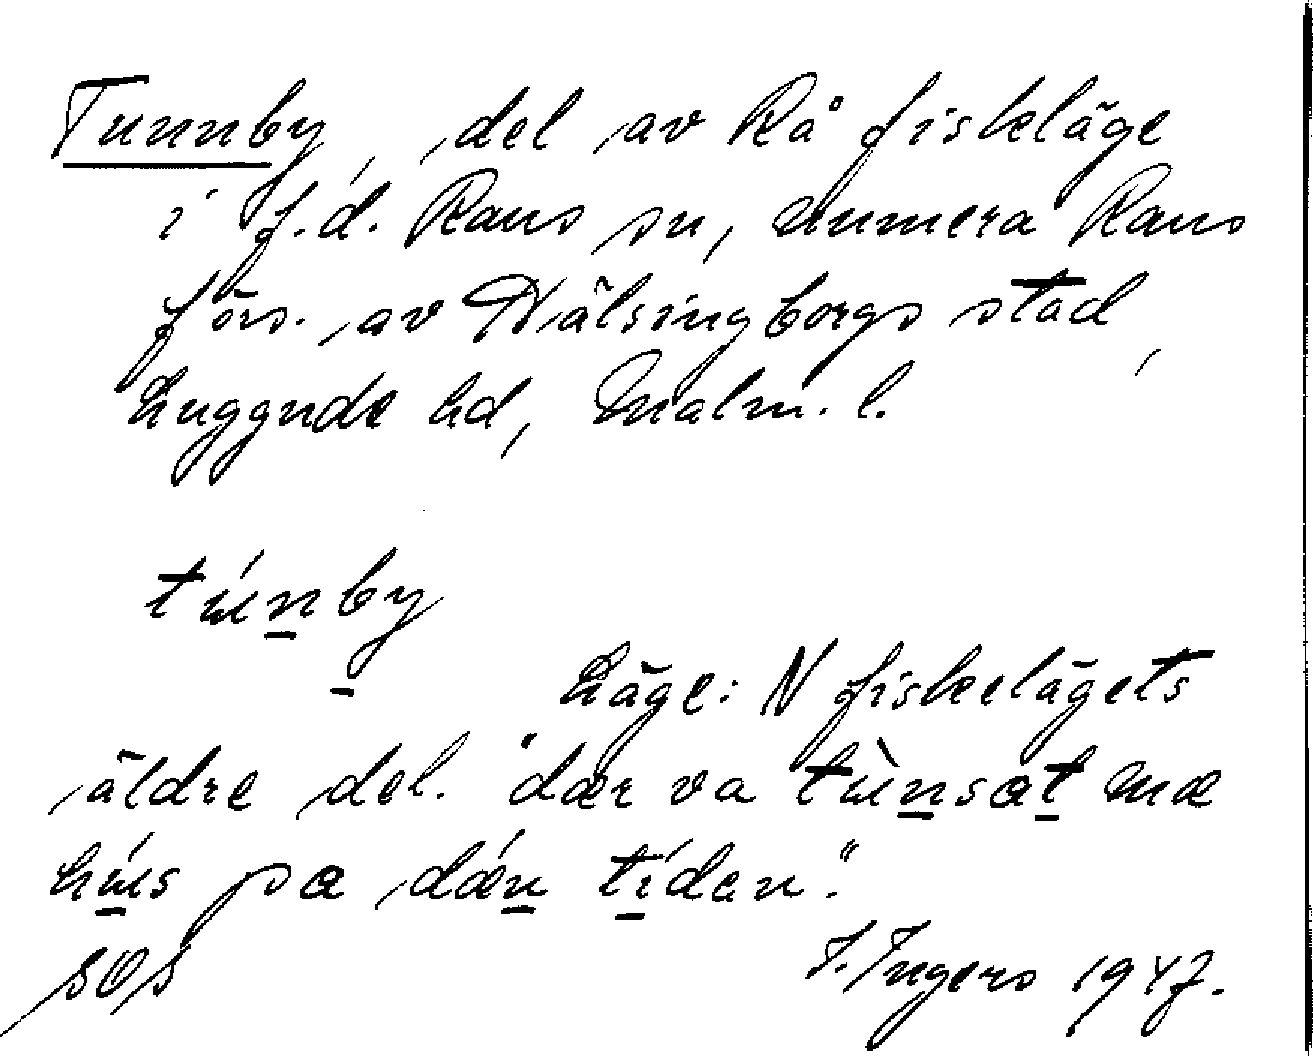 Tunnby, del av Rå fiskeläge
i f.d. Raus sn, numera Raus
förs. av Hälsingborgs stad,
Luggude hd, Malm. l.
túnby
Läge: N fiskelägets
äldre del. "dær va tùnsat mæ
hús pa dǽn tíden".
SOS
I. Ingers 1947.